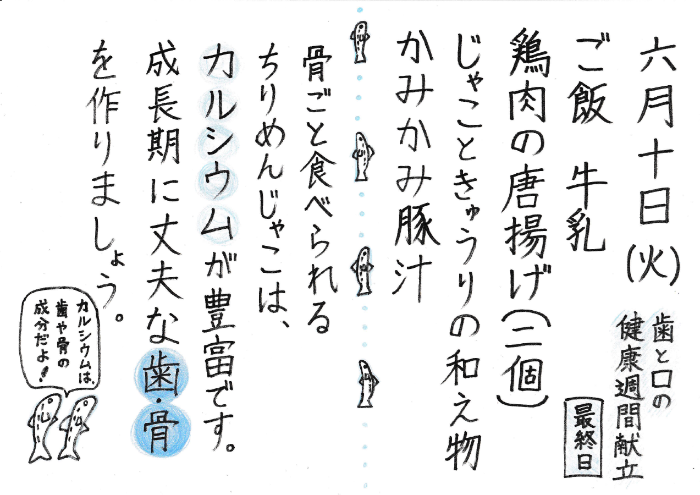 六月十日(火)
歯と口の
健康週間献立
最終日
ご飯　牛乳
鶏肉の唐揚げ(二個)
じゃことときゅうりの和え物
かみかみ豚汁
骨ごと食べられる
ちりめんじゃこは、
カルシウムが豊富です。
成長期に丈夫な歯・骨
を作りましょう。
カルシウムは、
歯や骨の
成分だよ！